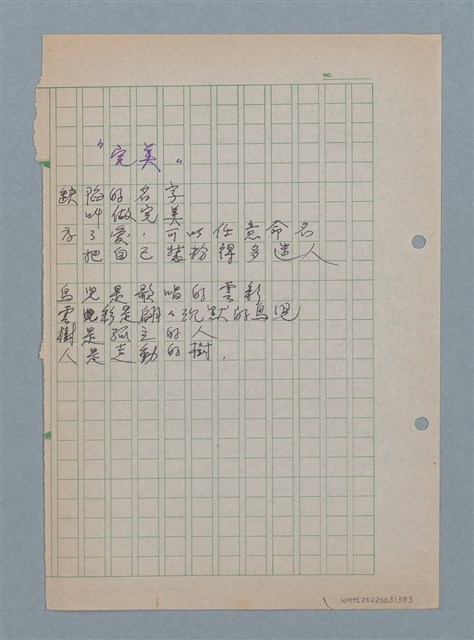 NO.
"完美"
缺陷的名字
叫做完美
為了愛，可以任意命名
把自己裝扮得多迷人
鳥兒是歌唱的雲彩
雲彩是翩々沉默的鳥兒
樹是孤立的人
人是走動的樹.
NMTL20220031383